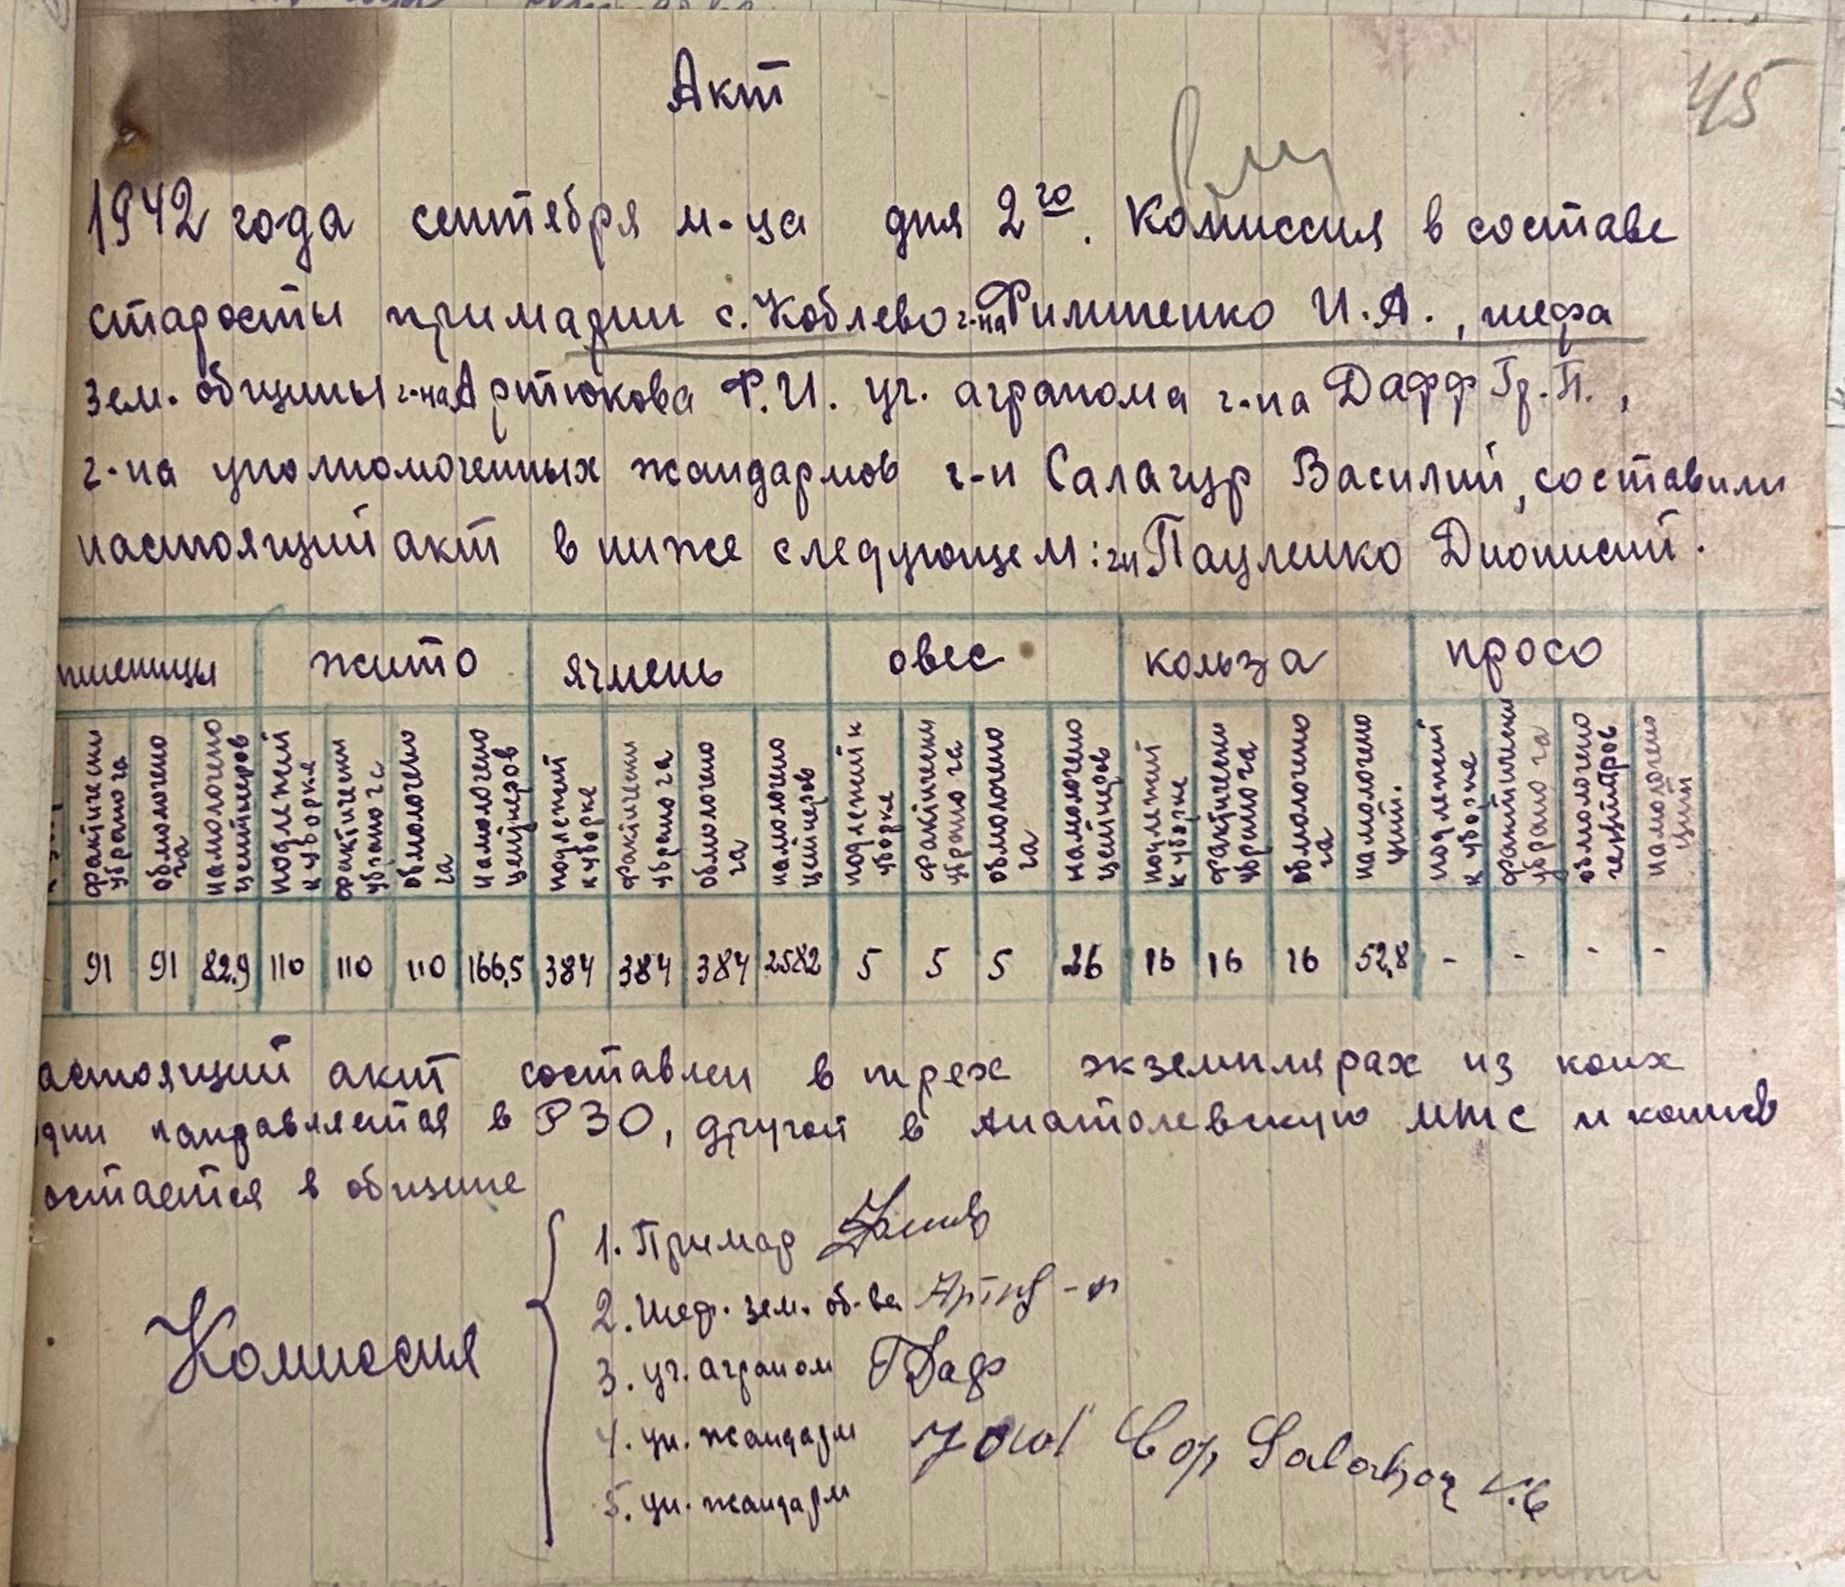 45
Акт
1942 года сентября м-ца дня 2го. Комиссия в составе
старосты примарии с. Коблево г-на Филипенко И.А., шефа
зем. общины г-на Артюкова Ф.И. уч. агранома г-на Дафф Гр. П.,
г-на уполномоченных жандармов г-н Салагур Василий, составили
настоящий акт в ниже следующем: гн Пауленко Дионисий.
пшеницы жито ячмень овес кольза просо
фактически убрано га
обмолочено га
намолочено центнеров
подлежит к уборке
фактичем убрано га
обмолочено га
намолочено центнеров
подлежит к уборке
фактичем убрано га
обмолочено га
намолочено центнеров
подлежит к уборке
фактичем убрано га
обмолочено га
намолочено центнеров
подлежит к уборке
фактичем убрано га
обмолочено га
намолочено цнт.
подлежит к уборке
фактичем убрано га
обмолочено гектаров
намолочено цнт
91 91 82.9 110 110 110 166,5 384 384 384 2582 5 5 5 26 16 16 16 52,8 - - - -
астоящий акт составлен в трех экземплярах из коих
дин направляется в РЗО, другой в Анатолевскую МТС и
остается в общине
Комиссия
1. Примар
2. Шеф. зем. об-ва
3. уч. аграном ГДаф
4. уп. жандарм
5. уп. жандарм